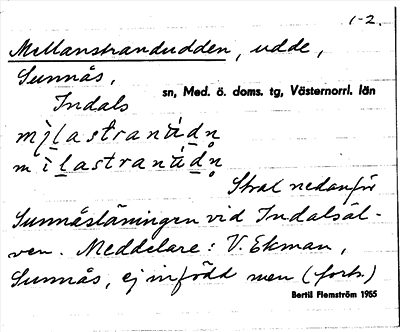 1-2.
Mellanstrandudden, udde,
Sunnås,
Indals sn, Med. ö. doms. tg, Västernorrl. län
Strax nedanför
Sunnåsläningen vid Indalsäl-
ven. Meddelare: V. Ekman,
Sunnås, ej infödd men (forts.)
Bertil Flemström 1965